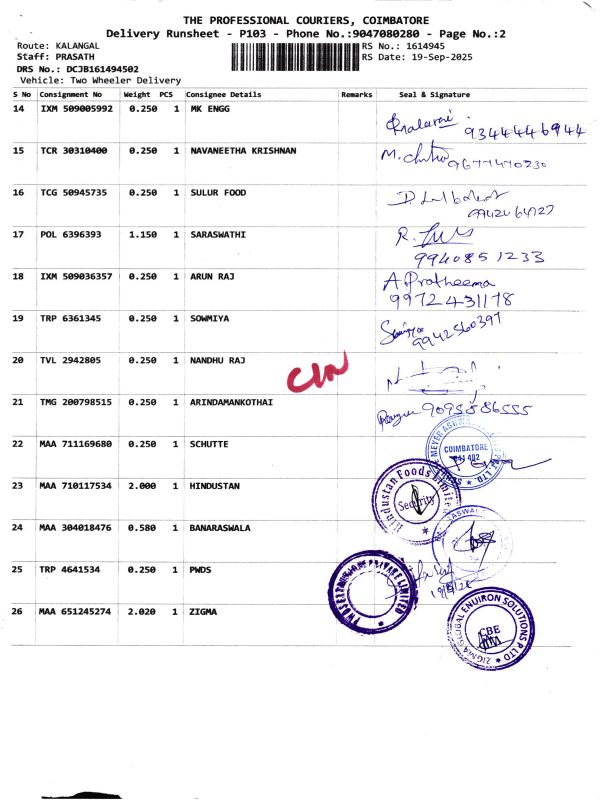 THE PROFESSIONAL COURIERS, COIMBATORE
Delivery Runsheet - P103 - Phone No.:9047080280 - Page No.:2
Route: KALANGAL RS No.: 1614945
Staff: PRASATH RS Date: 19-Sep-2025
DRS No.: DCJB161494502
Vehicle: Two Wheeler Delivery
S No Consignment No Weight PCS Consignee Details Remarks Seal & Signature
14 IXM 509005992 0.250 1 MK ENGG
9344446944
15 TCR 30310400 0.250 1 NAVANEETHA KRISHNAN
9677470230
16 TCG 50945735 0.250 1 SULUR FOOD
9942064727
17 POL 6396393 1.150 1 SARASWATHI
9940851233
18 IXM 509036357 0.250 1 ARUN RAJ A Pratheema
9972431178
19 TRP 6361345 0.250 1 SOWMIYA
9942560397
20 TVL 2942805 0.250 1 NANDHU RAJ
21 TMG 200798515 0.250 1 ARINDAMANKOTHAI
9095886555
22 MAA 711169680 0.250 1 SCHUTTE
COIMBATORE
641 402
23 MAA 710117534 2.000 1 HINDUSTAN
Hindustan Foods Limited
Security
24 MAA 304018476 0.580 1 BANARASWALA
25 TRP 4641534 0.250 1 PWDS
PRIVATE LIMITED
26 MAA 651245274 2.020 1 ZIGMA
ZIGMA GLOBAL ENVIRON SOLUTIONS P LTD
CBE